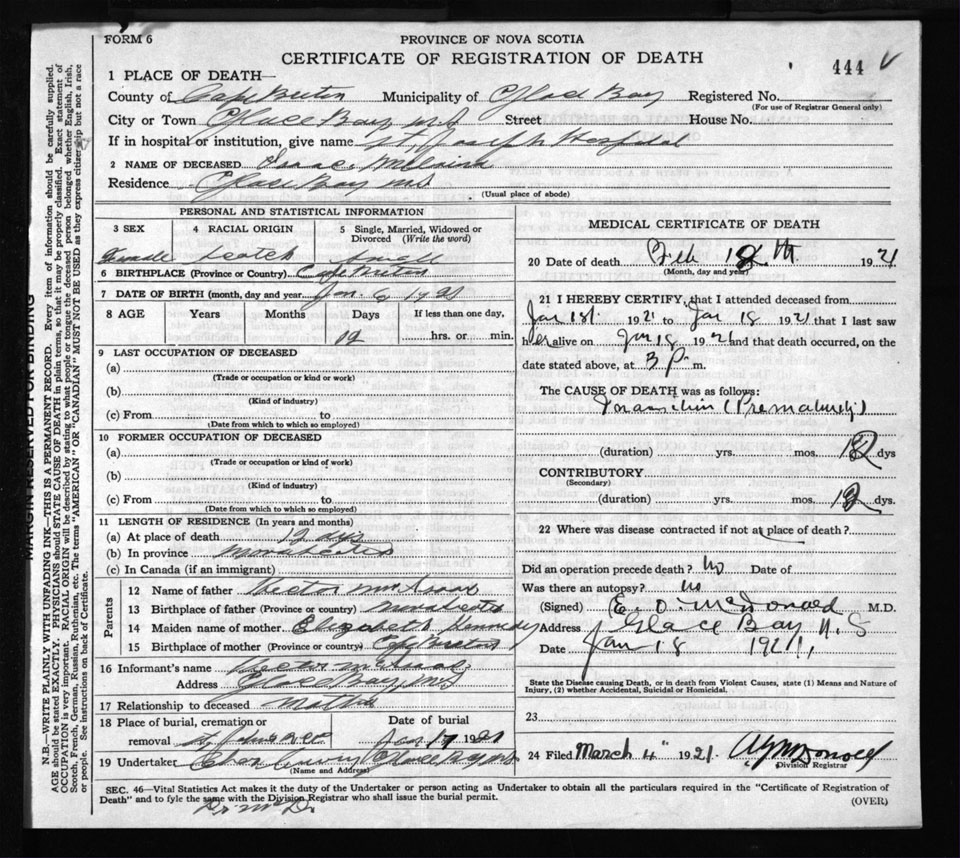 FORM 6
PROVINCE OF NOVA SCOTIA
CERTIFICATE OF REGISTRATION OF DEATH
444
1 PLACE OF DEATH—
County of Cape Breton Municipality of Glace Bay Registered No.
(For use of Registrar General only)
City or Town Glace Bay N.S Street House No.
If in hospital or institution, give name St. Joseph Hospital
2 NAME OF DECEASED
Residence Glace Bay N.S
(Usual place of abode)
PERSONAL AND STATISTICAL INFORMATION
3 SEX 4 RACIAL ORIGIN 5 Single, Married, Widowed or
Divorced (Write the word)
Female Scotch Single
6 BIRTHPLACE (Province or Country) Cape Breton
7 DATE OF BIRTH (month, day and year Jan. 6 1921
8 AGE Years Months Days If less than one day,
12 hrs. or min.
9 LAST OCCUPATION OF DECEASED
(a)
(Trade or occupation or kind or work)
(b)
(Kind of industry)
(c) From to
(Date from which to which so employed)
10 FORMER OCCUPATION OF DECEASED
(a)
(Trade or occupation or kind of work)
(b)
(Kind of industry)
(c) From to
(Date from which to which so employed)
11 LENGTH OF RESIDENCE (In years and months)
(a) At place of death 12 dys
(b) In province Nova Scotia
(c) In Canada (if an immigrant)
Parents
12 Name of father Hector McIsaac
13 Birthplace of father (Province or country) Nova Scotia
14 Maiden name of mother Elizabeth Kennedy
15 Birthplace of mother (Province or country) Cape Breton
16 Informant's name Hector McIsaac
Address Glace Bay, N.S
17 Relationship to deceased
18 Place of burial, cremation or Date of burial
removal Jan 17 1921
19 Undertaker Glace Bay N.S.
(Name and Address)
MEDICAL CERTIFICATE OF DEATH
20 Date of death Feb 18th. 1921
(Month, day and year)
21 I HEREBY CERTIFY, that I attended deceased from
Jan 1st 1921 to Jan 18 1921 that I last saw
her alive on Jan 18 1921 and that death occurred, on the
date stated above, at 3 P. m.
The CAUSE OF DEATH was as follows:
Inanition (Prematurity)
(duration) yrs. mos. 12 dys
CONTRIBUTORY
(Secondary)
(duration) yrs. mos. 12 dys.
22 Where was disease contracted if not at place of death?
Did an operation precede death? No Date of
Was there an autopsy? No
(Signed) E. O. McDonald M.D.
Address Glace Bay N. S
Date Jan 18 1921,
State the Disease causing Death, or in death from Violent Causes, state (1) Means and Nature of
Injury, (2) whether Accidental, Suicidal or Homicidal.
23
24 Filed March 4" 1921. McDonald
Division Registrar
SEC. 46—Vital Statistics Act makes it the duty of the Undertaker or person acting as Undertaker to obtain all the particulars required in the "Certificate of Registration of
Death" and to fyle the same with the Division Registrar who shall issue the burial permit.
(OVER)
MARGIN RESERVED FOR BINDING
N.B.—WRITE PLAINLY WITH UNFADING INK—THIS IS A PERMANENT RECORD. Every item of information should be carefully supplied.
AGE should be stated EXACTLY. PHYSICIANS should STATE CAUSE OF DEATH in plain terms, so that it may be properly classified. Exact statement of
OCCUPATION is very important. RACIAL ORIGIN will be described by stating to what people or tongue the deceased person belonged, whether English, Irish,
Scotch, French, German, Russian, Ruthenian, etc. The terms "AMERICAN" OR "CANADIAN" MUST NOT BE USED as they express citizenship but not a race
or people. See instructions on back of Certificate.